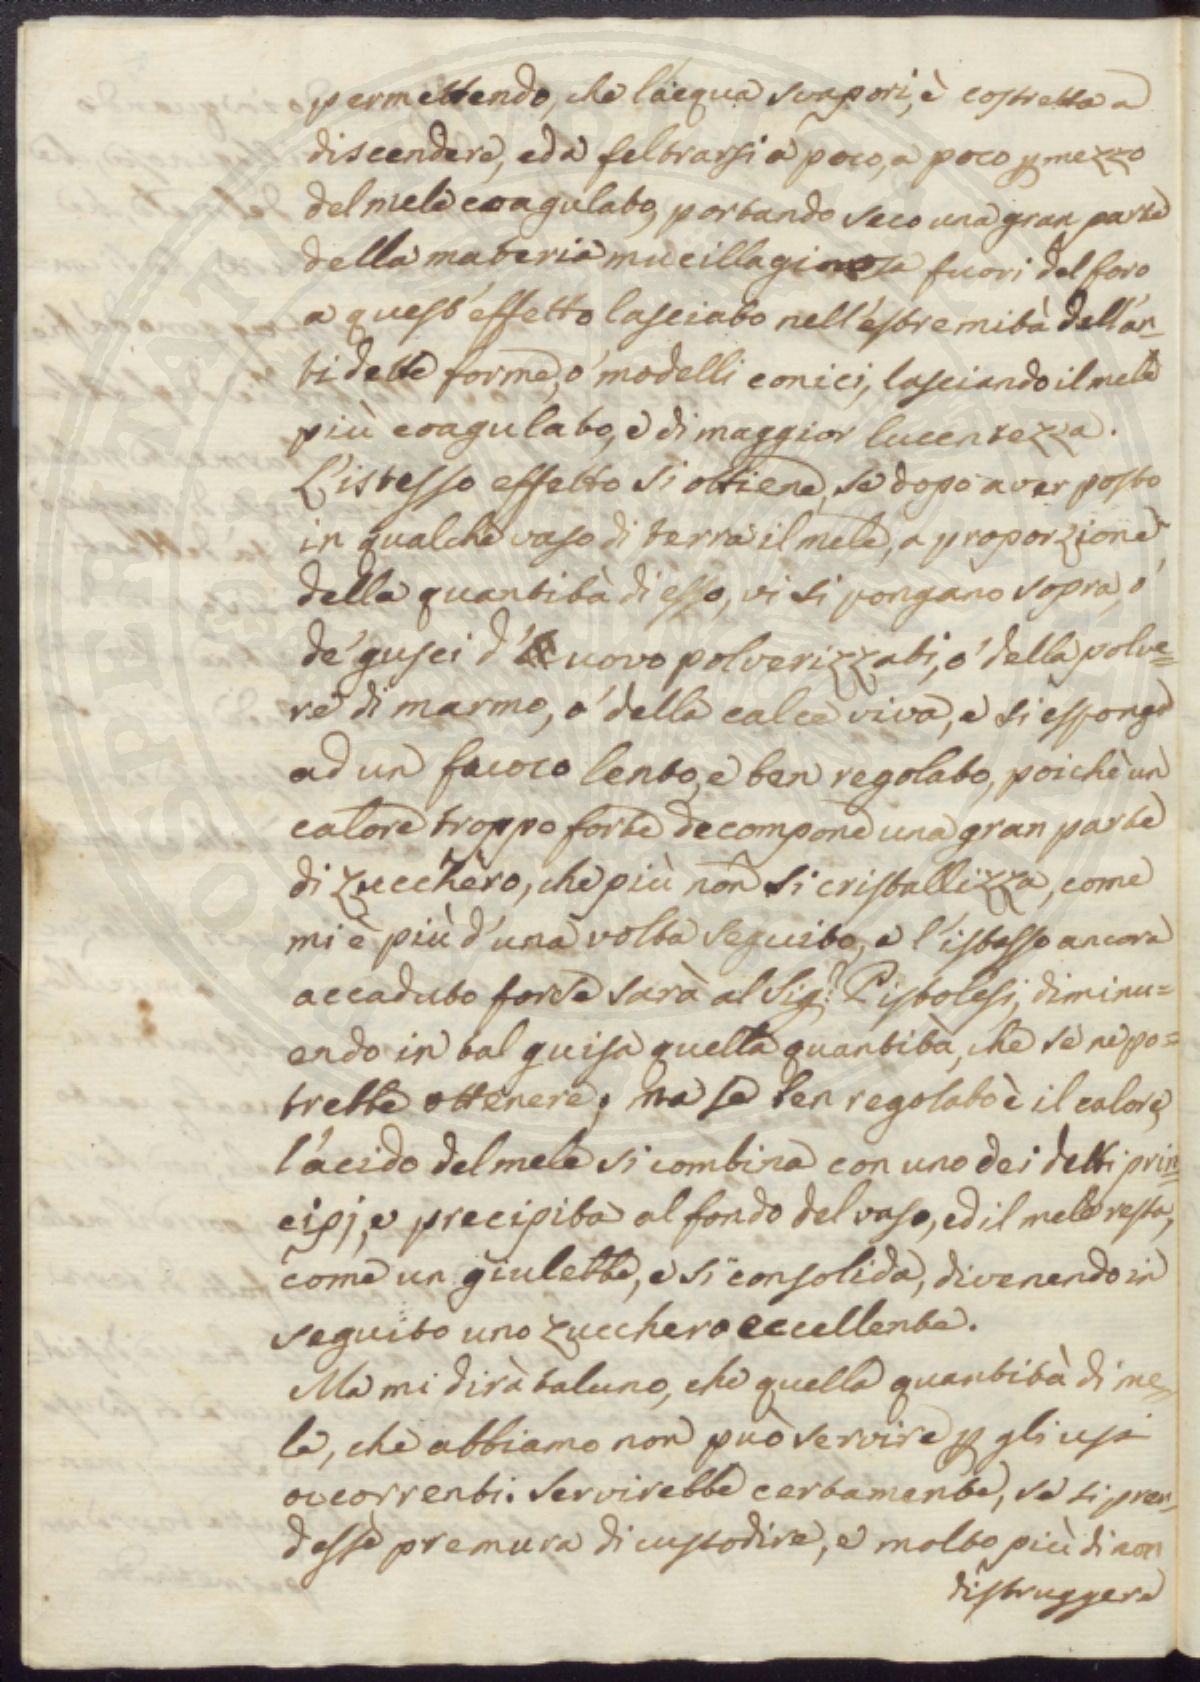 permettendo, che l'acqua svapori, è costretta a
discendere, ed a feltrarsi a poco, a poco p mezzo
del mele coagulato, portando seco una gran parte
della materia mucillaginosa fuori del foro
a quest'effetto lasciato nell'estremità dell'an-
tidette forme, o' modelli conici, lasciando il mele
più coagulato, e di maggior lucentezza.
L'istesso effetto si ottiene, se dopo aver posto
in qualche vaso di terra il mele, a proporzione
della quantità di esso, vi si pongano sopra, o'
de' gusci d' uovo polverizzati, o' della polve=
re di marmo, o' della calce viva, e si esponga
ad un fuoco lento, e ben regolato, poichè un
calore troppo forte decompone una gran parte
di zucchero, che più non si cristallizza, come
mi è più d'una volta seguito, e l'istesso ancora
accaduto forse sarà al Sig.r Pistolesi, diminu=
endo in tal guisa quella quantità, che se ne po=
trebbe ottenere; ma se ben regolato è il calore,
l'acido del mele si combina con uno dei detti prin=
cipj, e precipita al fondo del vaso, ed il mele resta,
come un giulebbe, e si consolida, divenendo in
seguito uno zucchero eccellente.
Ma mi dirà taluno, che quella quantità di me=
le, che abbiamo non può servire p gli usi
occorrenti. Servirebbe certamente, se si pren=
desse premura di custodire, e molto più di non
distruggere
PROSPERINATI EVOLICAT